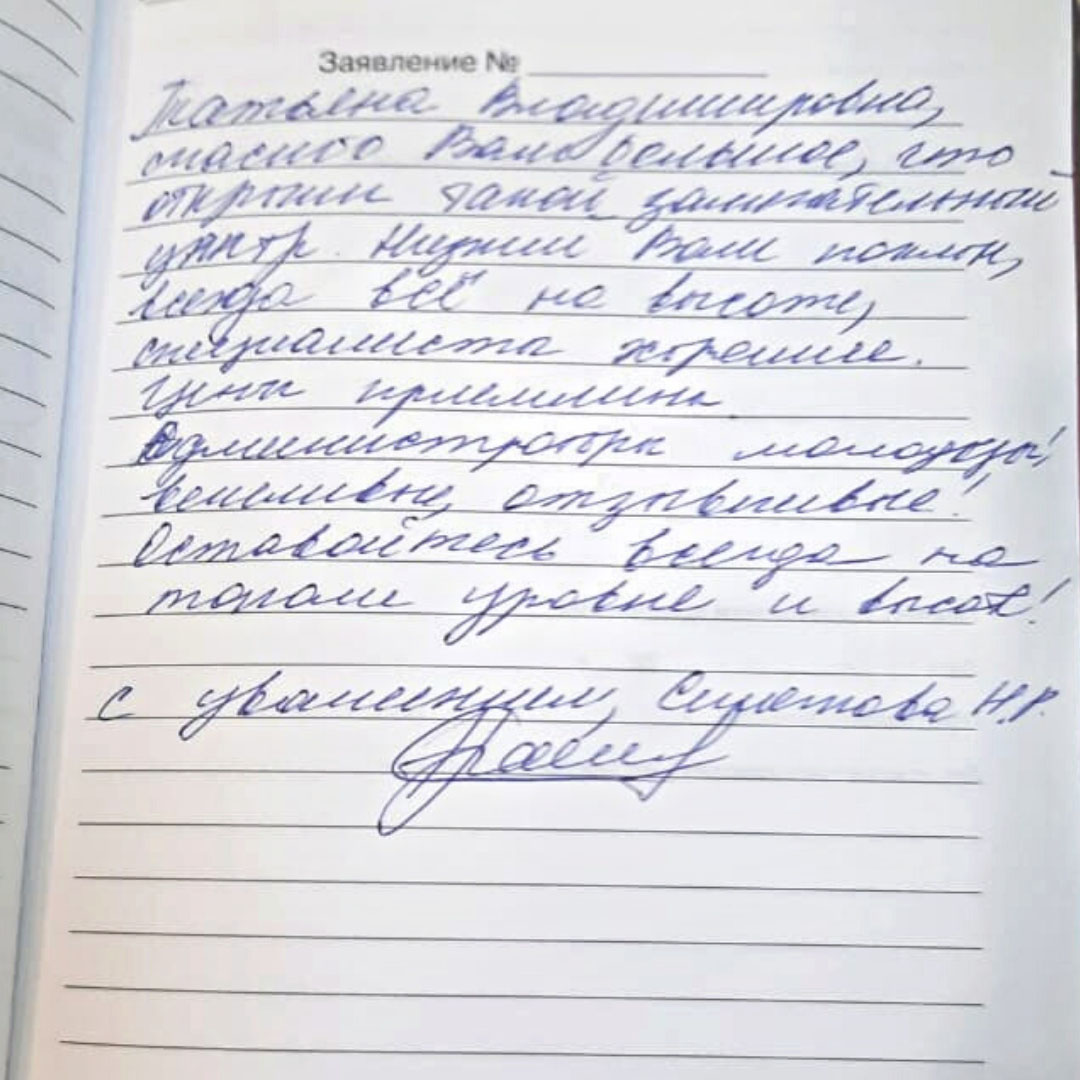 Заявление №
Татьяна Владимировна,
спасибо Вам большое, что
открыли такой замечательный
центр. Низкий Вам поклон,
всегда всё на высоте,
специалисты хорошие.
Цены приемлимы.
Администраторы молодцы!
вежливые, отзывчивые!
Оставайтесь всегда на
таком уровне и высоте!
с уважением, Н.Р.